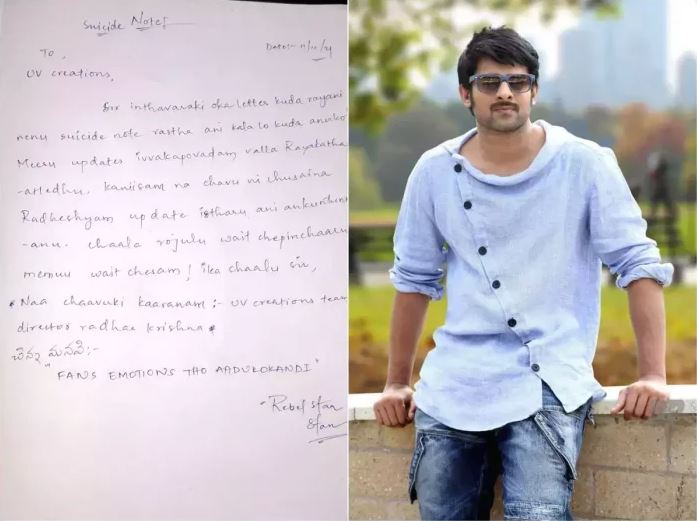 Suicide Note
Date:- 11/11/21
To,
UV creations,
Sir inthavaraki oka letter kuda rayani
nenu suicide note rastha ani kala lo kuda anuko
Meeru updates ivvakapovadam valla Rayakatha
-atledhu. kaniisam na chavu ni chusaina
Radheshyam update istharu ani ankuntunn
-anu. chaala rojulu wait chepinchaaru
memuu wait chesam! ika chaalu sir,
Naa chaavuki kaaranam:- UV creations team
director radhae krishna.
చిన్న మనవి:-
"FANS EMOTIONS THO AADUKOKANDI"
-Rebel star
&fan